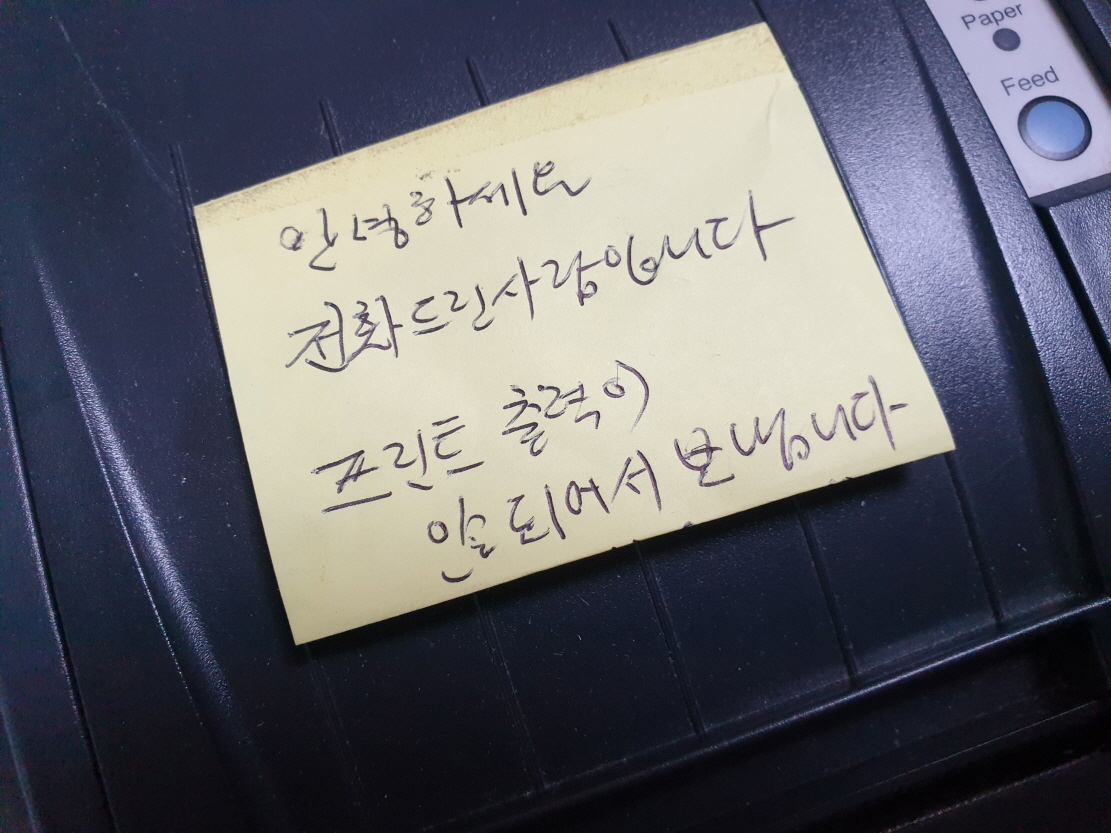 Paper
Feed
안녕하세요
전화드린사람입니다
프린트 출력이
안되어서 보냅니다